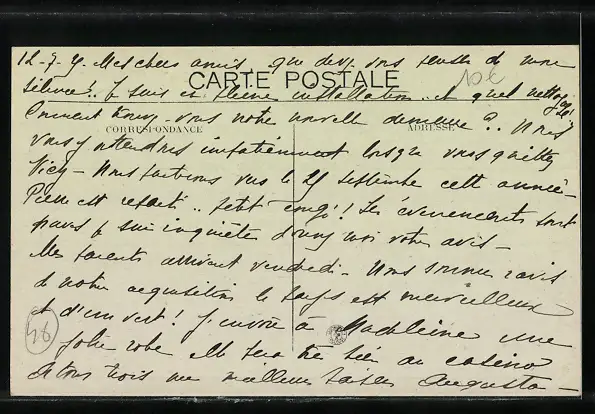 12-7-9. Mes chers amis, que devez vous penser de mon
CARTE POSTALE
10€
silence!. Je suis en pleine installation .. et quel nettoyage!
Comment trouvez-vous notre nouvelle demeure ?. Nous
CORRESPONDANCE
ADRESSE
vous y attendons impatiemment lorsque vous quitterez
Vicy - Nous partirons vers le 25 septembre cette année -
Pierre est reparti .. petit congé! Les évènements sont
graves je suis inquiète donnez moi votre avis -
Mes parents arrivent vendredi - Nous sommes ravis
de notre acquisition le pays est merveilleux
et d'un vert! J'envoie à Madeleine une
46
jolie robe elle sera très bien au casino
A tous trois mes meilleurs baisers Augusta -